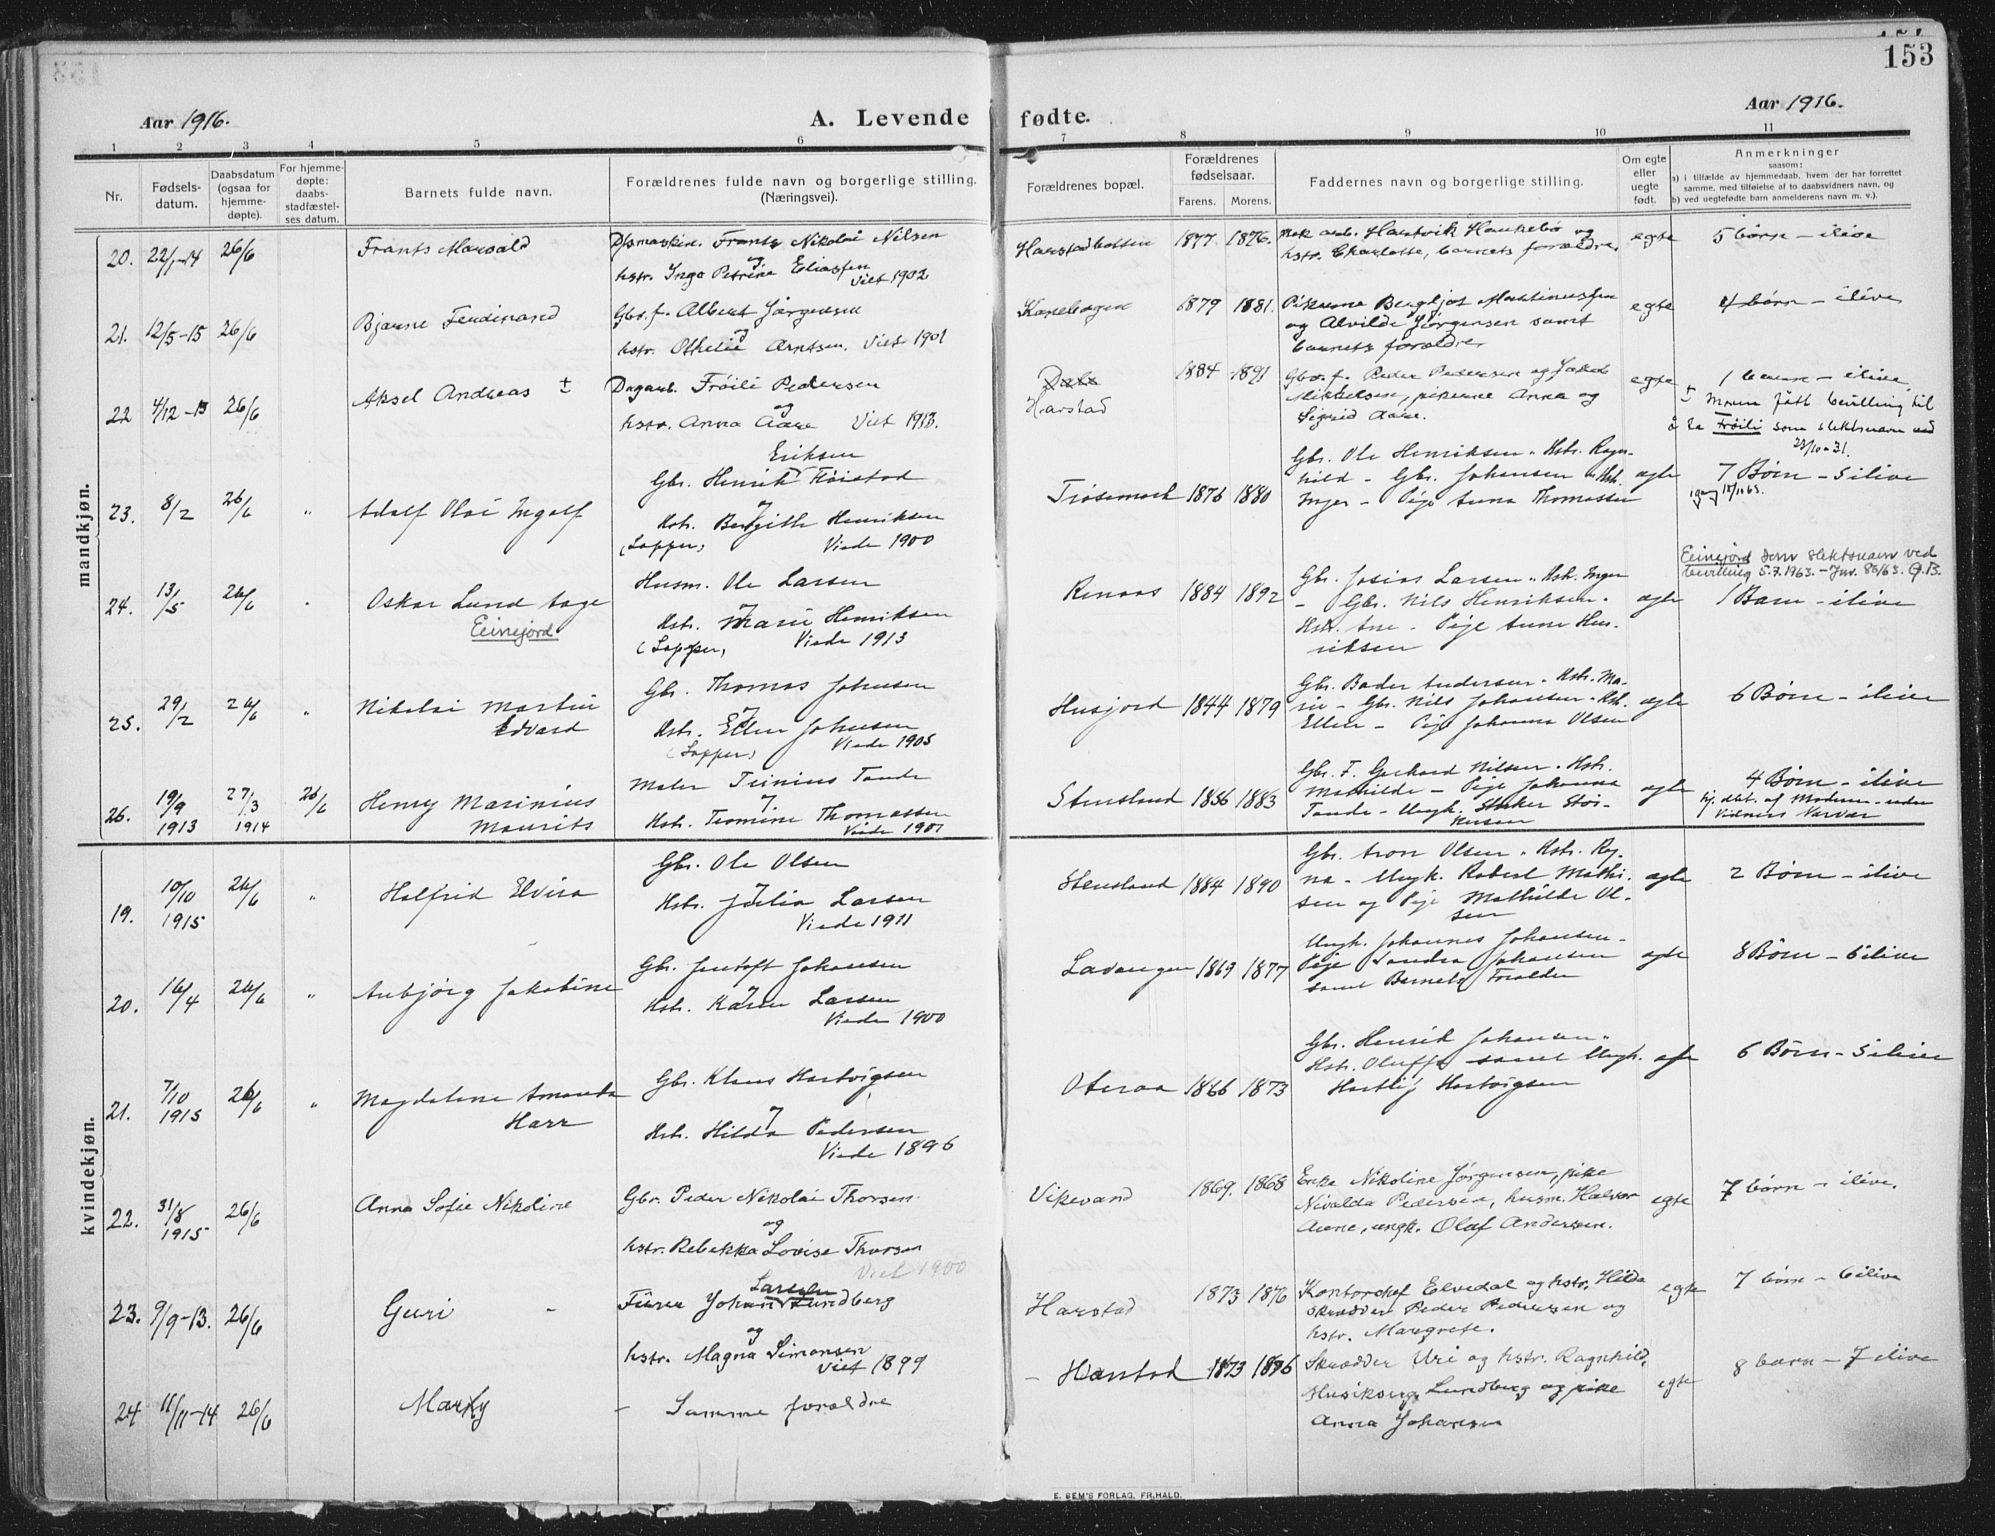 153
Aar 1916.
A. Levende fødte.
Aar 1916.
1 2 3 4 5 6 7 8 9 10 11
Nr.
Fødsels-
datum.
Daabsdatum
(ogsaa for
hjemme-
døpte).
For hjemme-
døpte:
daabs-
stadfæstel-
ses datum.
Barnets fulde navn.
Forældrenes fulde navn og borgerlige stilling.
(Næringsvei).
Forældrenes bopæl.
Forældrenes
fødselsaar.
Farens. Morens.
Faddernes navn og borgerlige stilling.
Om egte
eller
uegte
født.
Anmerkninger
saasom:
a) i tilfælde av hjemmedaab, hvem der har forrettet
samme, med tilføielse af to daabsvidners navn, og
b) ved uegtefødte barn anmelderens navn m. v.).
mandkjøn.
20. 22/1-14 26/6 Frants Marvald
Frants Nikolai Nilsen
og
hstr. Inga Petrine Eliassen
Viet 1902
Harstadbotten 1877. 1876.
Hartvik Haukebø og
hstr. Charlotte, barnets forældre.
egte 5 børn - ilive
21. 12/5-15 26/6 Bjarne Ferdinand
Gbr.f. Albert Jørgensen
og
hstr. Othelie Arntsen. Viet 1901
Kanebogen 1879 1881.
Pikerne Bergljot Martinussen
og Alvilde Jørgensen samt
barnets forældre.
egte 4 børn - ilive
22 4/12-13 26/6 Aksel Andreas ±
Dagarb. Frøili Pedersen
og
hstr. Anna Aare Viet 1913.
Harstad 1884 1891
Gbr.f. Peder Pedersen og Jakob
Mikkelsen, pikerne Anna og
Sigrid Aare.
egte 1 barn - ilive
± Moren fått bevilling til
å ta Frøili som slektsnavn ved
23/10-31.
23. 8/2 26/6 " Adolf Olai Ingolf
Eriksen
Gbr. Henrik Høistad
Hstr. Bergitte Henriksen
(Lapper) Viede 1900
Trøsemark 1876 1880
Gbr. Ole Henriksen - Hstr. Ragn-
hild - Gbr. Johansen - Hstr.
Inger - Pige Anna Thomassen
egte 7 Børn - 5 ilive
24. 13/5 26/6 " Oskar Lund Aage
Eeinejord
Husm. Ole Larsen
Hstr. Marie Henriksen
(Lapper) Viede 1913
Renaas 1884 1892
Gbr. Josias Larsen - Hstr. Inger
- Gbr. Nils Henriksen -
Hstr. Ane - Pige Anne Hen-
riksen
egte
Eeinejord som slektsnavn ved
bevilling 5.7.1963. - Jnr. 85/63. G.B.
1 Barn - ilive
25. 29/2 26/6 " Nikolai Martin
Edvard
Gbr. Thomas Johnsen
Hstr. Ellen Johnsen
(Lapper) Viede 1905
Husjord 1844 1879
Gbr. Bader Andersen - Hstr. Ma-
rie - Gbr. Nils Johansen - Hstr.
Ellen - Pige Johanna Olsen
egte 6 Børn - ilive
26. 19/9 1913 27/3 1914 26/6 Henry Marinius
Maurits
Maler Teinius Tande
Hstr. Tromine Thomassen
Viede 1901
Stensland 1856 1883
Gbr. F. Gerhard Nilsen - Hstr.
Mathilde - Pige Johanna
Tande - Ungk.
egte 4 Børn - ilive
hj. døbt. af Moderen - uden
Vidners Nærvær
kvindekjøn.
19. 10/10 1915 26/6 " Halfrid Elvira
Gbr. Ole Olsen
Hstr. Julia Larsen
Viede 1911
Stensland 1884 1890
Gbr. Aron Olsen - Hstr. Rag-
na - Ungk. Robert Mathi-
sen og Pige Mathilde Ol-
sen
egte 2 Børn - ilive
20. 16/4 26/6 " Anbjørg Jakobine
Gbr. Jentoft Johansen
Hstr. Karen Larsen
Viede 1900
Lavangen 1869 1877
Ungk. Johannes Johansen -
Pige Sandra Johansen
samt Barnets Forældre
egte 8 Børn - 6 ilive
21. 7/10 1915 26/6 " Magdalene Amanda
Harr
Gbr. Klaus Hartvigsen
Hstr. Hilda Pedersen
Viede 1896
Oteraa 1866 1873
Gbr. Henrik Johansen -
Hstr. Oluffa samt Ungk.
Hartvigsen
egte 6 Børn - 5 ilive
22. 31/8 1915 26/6 Anna Sofie Nikoline
Gbr. Peder Nikolai Thorsen
og
hstr. Rebekka Lovise Thorsen
Viet 1900
Vikevand 1869. 1868
Enke Nikoline Jørgensen, pike
Nivalda Pedersen, husm. Halvor
Aune, ungk. Olaf Andersen.
egte 7 børn - ilive.
23. 9/9-13. 26/6 Guri -
Larsen
Fører Johan Lundberg
og
hstr. Magna Simonsen
Viet 1899
Harstad 1873 1876
Kontorchef Elvedal og hstr. Hilda
skrædder Peder Pedersen og
hstr. Margrete.
egte 7 børn - 6 ilive
24 11/11-14 26/6 Marky - Samme forældre
- Harstad 1873 1876
Skrædder Uri og hstr. Ragnhild,
Lundberg og pike
Anna Johansen
egte 8 børn - 7 ilive
E. SEM'S FORLAG, FR.HALD.